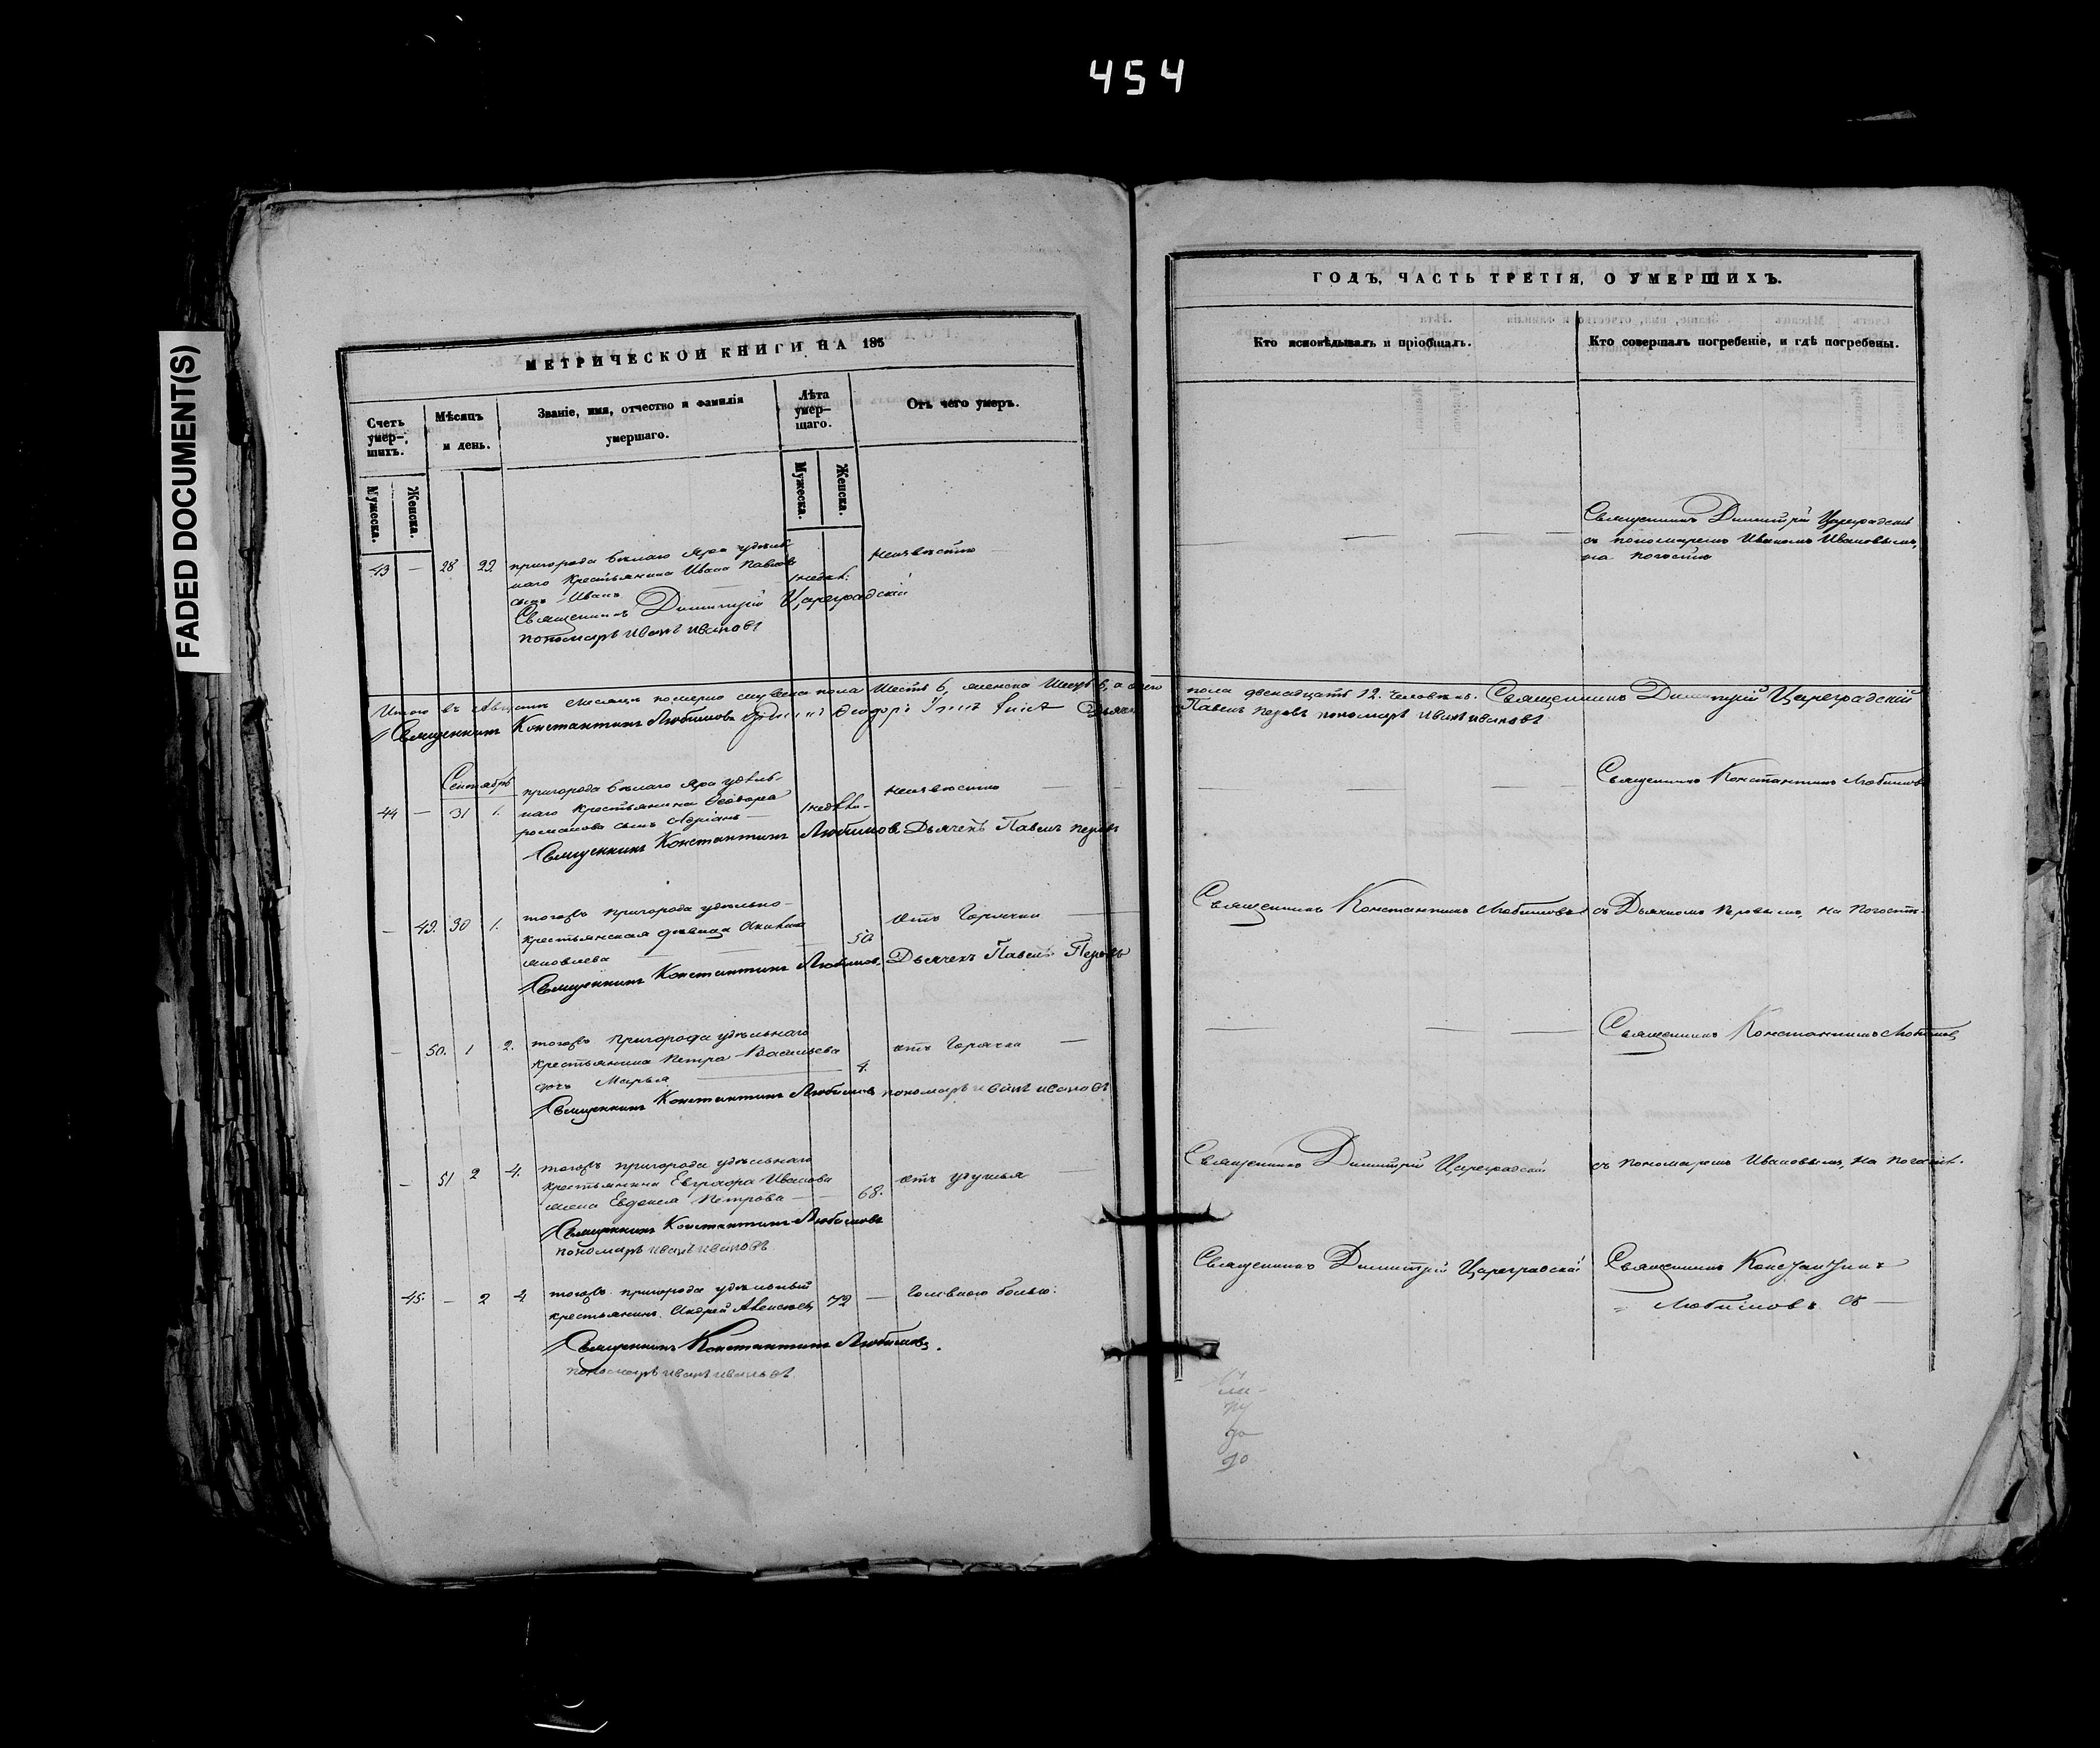 454
FADED DOCUMENT(S)
МЕТРИЧЕСКОЙ КНИГИ НА 185
Счетъ умер-шихъ.
Мужеска.
Женска.
Мѣсяцъ и день.
Званіе, имя, отчество и фамилія умершаго.
Лѣта умер-шаго.
Мужеска.
Женска.
Отъ чего умеръ.
43 — 28 29. пригорода Бѣлаго Яра удѣль
наго Крестьянина Ивана Павлова
сынъ Иванъ 1 недѣл: Неизвѣстно
Священникъ Димитрій Цареградскій
пономарь иванъ ивановъ
Итого въ Августѣ Месяцѣ померло мужеска пола Шесть 6, женска Шесть 6, а обоего
Священникъ Константинъ Любимовъ
Сентябрь
44 — 31 1. пригорода Бѣлаго Яра удѣль-
наго Крестьянина Ѳеодора
романова сынъ Адріанъ — 1 недѣли- неизвѣстно —
Священникъ Константинъ Любимовъ Дьячекъ Павелъ перовъ
— 49. 30 1. тогожъ пригорода удѣльно-
крестьянская девица
яковлева 50 Отъ Горячки —
Священникъ Константинъ Любимовъ. Дьячекъ Павелъ Перовъ
— 50. 1 2. тогожъ пригорода удѣльнаго
крестьянина Петра Васильева
дочь Марья 4. отъ Горячки —
Священникъ Константинъ Любимовъ пономарь иванъ ивановъ
— 51 2 4. тогожъ пригорода удѣльнаго
крестьянина Евграфа Иванова
жена Евдокея Петрова — 68. отъ удушья
Священникъ Константинъ Любимовъ
пономарь иванъ ивановъ
45. — 2 4. тогожъ пригорода удѣльный
крестьянинъ Андрей Алексѣевъ 72 — Головною болью:
Священникъ Константинъ Любимовъ.
пономарь иванъ ивановъ
ГОДЪ, ЧАСТЬ ТРЕТІЯ, О УМЕРШИХЪ.
Кто исповѣдывалъ и пріобщалъ.
Кто совершалъ погребеніе, и гдѣ погребены.
— — — Священникъ Димитрій Цареградскій
съ пономаремъ Иваномъ Ивановымъ,
на погостѣ
пола двенадцать 12. человѣкъ. Священникъ Димитрій Цареградскій
Павелъ перовъ пономарь иванъ ивановъ
— — — Священникъ Константинъ Любимовъ
Священникъ Константинъ Любимовъ съ Дьячкомъ Перовымъ, на Погостѣ.
— — — Священникъ Константинъ Любимовъ
Священникъ Димитрій Цареградскій съ пономаремъ Ивановымъ, на погостѣ.
Священникъ Димитрій Цареградскій Священникъ Константинъ
Любимовъ съ —